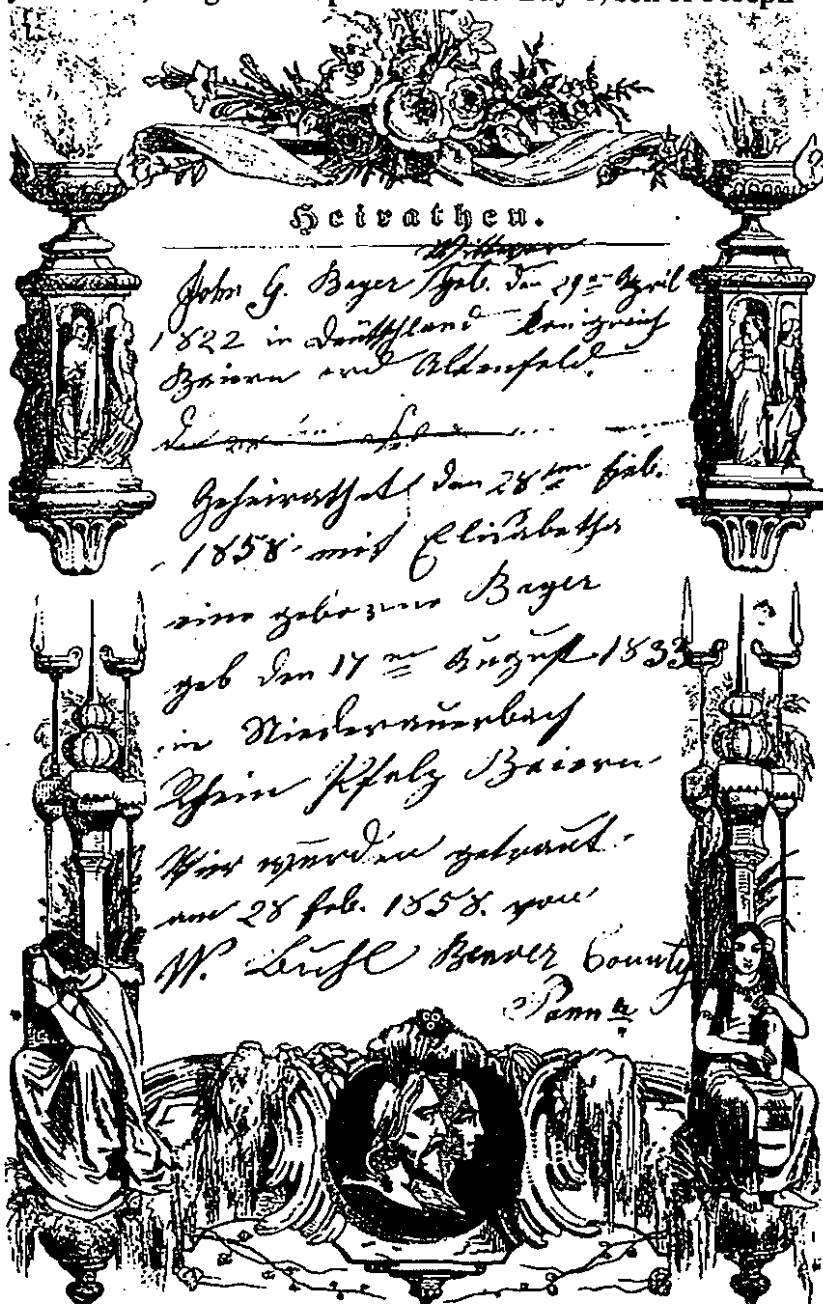 Heirathen.
John G. Beyer geb. den 29en April
1822 in Deutschland Kenigreich
Beiern Altenfeld.
Geheirathet den 28ten Feb.
1858 mit Elisabetha
eine geborene Beyer
geb den 17en August 1833
in Niederauerbach
Rhein Pfalz Beiern
Wir wurden getraut
am 28 Feb. 1858. von
W. Buhl Beaver County
Penn